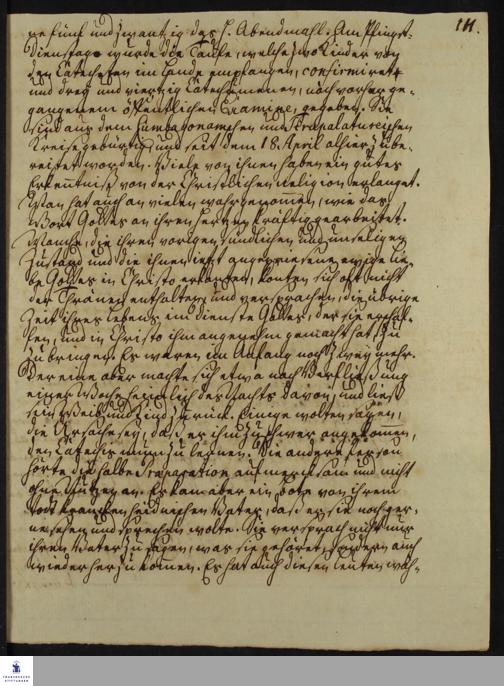 111.
ne fünf und zwantzig das H. Abendmahl. Am Pfingst-
dienstage wurde die Taufe, welche zwo Kinder von
den Catecheten im Lande empfangen, confirmiret
und drey und viertzig Catechumenen, nach vorherge-
gangenem öffentlichen Examine, gegeben. Sie
sind aus dem und
Kreise gebürtig und seit dem 18. April alhier zube-
reitet worden. Viele von ihnen haben ein gutes
Erkentniß von der Christlichen Religion erlanget.
Man hat auch an vielen wahrgenommen, wie das
Wort Gottes an ihren Hertzen kräftig gearbeitet.
Manche, die ihren vorigen sündlichen und unseligen
Zustand und die ihnen ietzt angepriesene ewige Lie-
be Gottes in Christo erkanten, konten sich oft nicht
der Thränen enthalten und versprachen, die übrige
Zeit ihres Lebens im Dienste Gottes, der sie erschaf-
fen, und in Christo ihm angenehm gemacht hat, zu
zubringen. Es waren im Anfang noch zwey mehr.
Der eine aber machte sich etwa nach Verfließung
einer Woche heimlich des Nachts davon, und ließ
sein Weib und Kind zurück. Einige wolten sagen,
die Ursache sey, daß es ihm zu schwer angekommen,
den Catechismum zu lernen. Die andere Person
hörte die halbe Præparation aufmercksam und nicht
ohne Nutzen an. Es kam aber ein Bote von ihrem
todt krancken heidnischen Vater, daß er sie noch ger-
ne sehen und sprechen wolte. Sie versprach nicht nur
ihrem Vater zu sagen, was sie gehöret, sondern auch
wieder her zu kommen. Es hat auch diesen Leuten wäh-
FRANCKESCHE
STIFTUNGEN